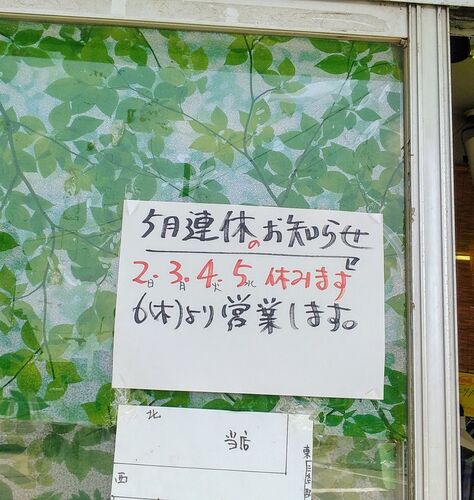 5月連休のお知らせ
2日・3月・4火・5水 休みます
6(木)より営業します。
北
当店
西
東